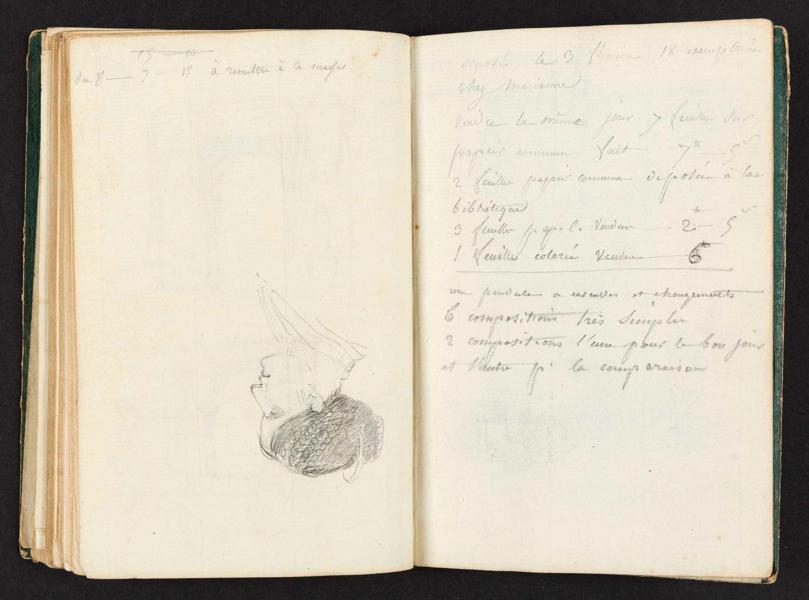 15 — 16
du 8 — 7 — 15 à remettre à la
déposé le 3 février 18 exemplaires
chez Marianne
vendu le même jour 7 feuilles sur
papier commun fait 7 — 5
2 feuilles papier commun déposées à la
bibliotèque
3 feuille pap. vendu — 2 — 5
1 feuille coloriée vendue — 6
une pendule a et changements
6 compositions très simples
2 compositions l'une pour le bon jour
et l'autre p. la comparaison